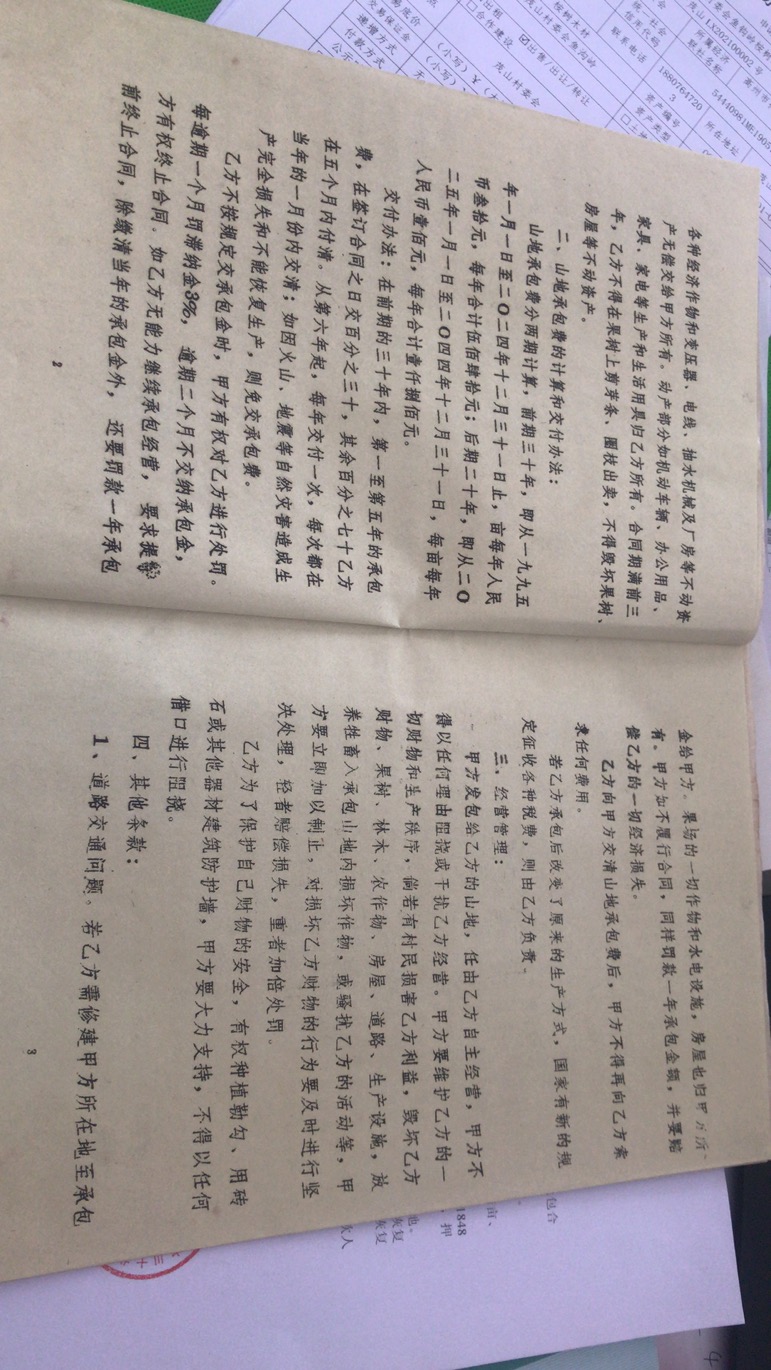 各种经济作物和变压器、电线、抽水机械及厂房等不动资
产无偿交给甲方所有。动产部分如机动车辆、办公用品、
家具、家电等生产和生活用具归乙方所有。合同期满前三
年，乙方不得在果树上剪芽条、圈枝出卖，不得毁坏果树、
房屋等不动资产。
二、山地承包费的计算和交付办法：
山地承包费分两期计算，前期三十年，即从一九九五
年一月一日至二〇二四年十二月三十一日止，亩每年人民
币叁拾元，每年合计伍佰肆拾元；后期二十年，即从二〇
二五年一月一日至二〇四四年十二月三十一日，每亩每年
人民币壹佰元，每年合计壹仟捌佰元。
交付办法：在前期的三十年内，第一至第五年的承包
费，在签订合同之日交百分之三十，其余百分之七十乙方
在五个月内付清。从第六年起，每年交付一次，每次都在
当年的一月份内交清；如因火山、地震等自然灾害造成生
产完全损失和不能恢复生产，则免交承包费。
乙方不按规定交承包金时，甲方有权对乙方进行处罚。
每逾期一个月罚滞纳金3%，逾期二个月不交纳承包金，
方有权终止合同。如乙方无能力继续承包经营，要求提
前终止合同，除缴清当年的承包金外，还要罚款一年承包
2
金给甲方。果场的一切作物和水电设施，房屋也归甲方所
有。甲方如不履行合同，同样罚款一年承包金额，并要赔
偿乙方的一切经济损失。
乙方向甲方交清山地承包费后，甲方不得再向乙方索
求任何费用。
若乙方承包后改变了原来的生产方式，国家有新的规
定征收各种税费，则由乙方负责。
三、经营管理：
甲方发包给乙方的山地，任由乙方自主经营，甲方不
得以任何理由阻挠或干扰乙方经营。甲方要维护乙方的一
切财物和生产秩序，倘若有村民损害乙方利益，毁坏乙方
财物、果树、林木、农作物、房屋、道路、生产设施，放
养牲畜入承包山地内损坏作物，或骚扰乙方的活动等，甲
方要立即加以制止，对损坏乙方财物的行为要及时进行坚
决处理，轻者赔偿损失，重者加倍处罚。
乙方为了保护自己财物的安全，有权种植勒勾、用砖
石或其他器材建筑防护墙，甲方要大力支持，不得以任何
借口进行阻挠。
四、其他条款：
1、道路交通问题。若乙方需修建甲方所在地至承包
3
茂山LX202100002号
所属经济
联社名称
社会
信用代码
联系电话
1880764720
3
资产编号
资产类型
所在地址
54440981ME1905
桉树木材
茂山村委会鱼沟岭
☑出售/出让/转让
□合作建设
茂山村委会
交易保证金
递增方式
付款方式
(小写)￥
(小写)
包合
亩、
押
1848
恢复
恢复
人